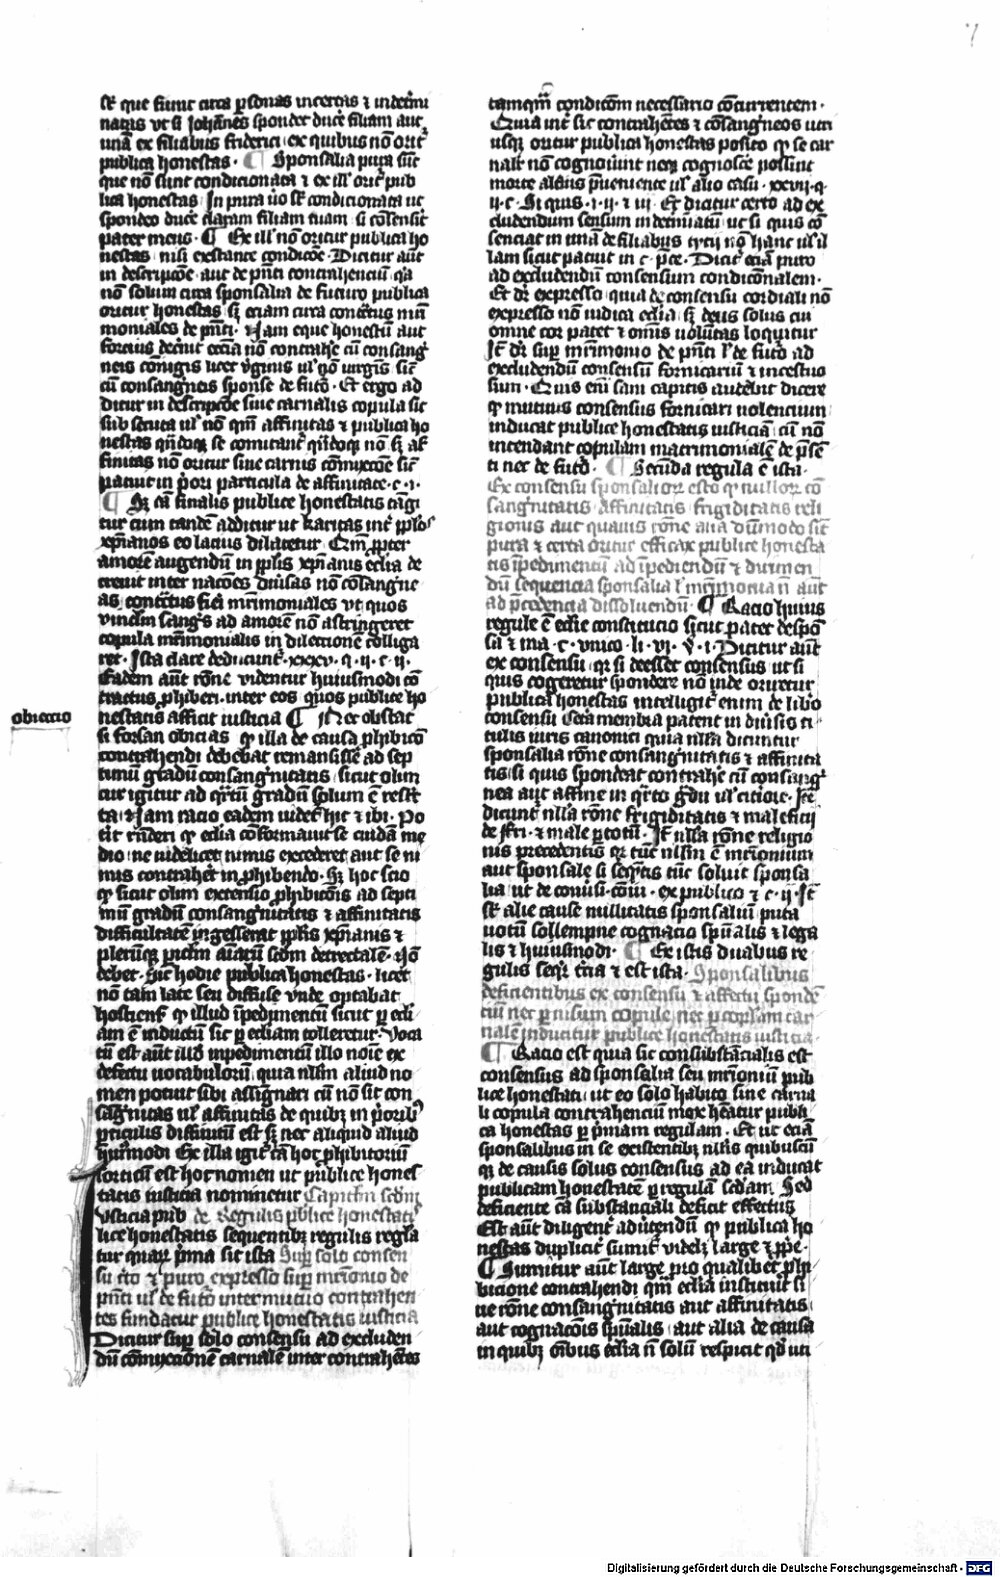 sūt que fiunt circa personas incertas ⁊ indetermi
natas vt si Johānes spondet duce᷑ filiam aut
unā ex filiabus friderici ex quibus nō orit᷑
publica honestas · ¶ Sponsalia pura sūt
que nō sunt condicionata ⁊ ex ill᷑ orit᷑ pub
lica honestas In pura ūo sūt condicionata ut
spondeo duce᷑ claram filiam tuam si cōsensit᷑
pater meus · ¶ Ex ill᷑ nō oritur publica ho
nestas nisi existante condicōe Dicitur aūt
in descripcōe aut de pn̄ti contrahenciū q᷑a
nō solum circa sponsalia de futuro publica
oritur honestas sꝫ eciam circa contc̄tus mr̄i
moniales de pn̄ti · Nam eque honestū aut
forcius decr̄nit ecc̄ia nō contrahe᷑ cū consang᷑
neis coniugis licet v᷑ginis ul᷑ nō uirgīs sic̄
cū consang᷑neis sponse de futō · Et ergo ad
ditur in descripcōe siue carnalis copula sit
sub secuta ul᷑ nō qm̄ affinitas ⁊ publica ho
nestas qn̄doqꝫ se comitant᷑ qn̄doqꝫ nō sꝫ af
finitas nō oritur sine carnis cōmixcōe sic̄
patuit in p᷑ori particula de affinitate · c · i ·
¶ Sꝫ cā finalis publice honestatis cāgi
tur cum tandē additur ut karitas int᷑ pp̄los
xp̄ianos eo lacius dilatetur Qm̄ ꝓpter
amorē augendū in pp̄lis xp̄ianis ecl̄ia de
creuit inter nacōes diūsas nō cōsang᷑ne
as contc̄tus fieri mr̄imoniales vt quos
vinclm sang᷑s ad amorē nō astringeret
copula mr̄imonialis in dileccionē colliga
ret · Ista clare dedicunt᷑ · xxxv · q · ii · c · ii ·
Eadem aūt rōne videntur huiusmodi cō
tractus ꝓhiberi inter eos quos publice ho
nestatis afficit iusticia ¶ Nec obstat
obieccio
si forsan obicias qꝫ illa de causa ꝓhibicō
contrahendi debebat remansisse ad sep
timū gradū consang᷑nitatis sicut olim
cur igitur ad q᷑rtū gradū solum ē restc̄
ta Nam racio eadem videt᷑ hic ⁊ ibi · Po
tit᷑ rn̄deri qꝫ ecl̄ia cōformauit se cuidā me
dio ne videlicet nimis excederet aut se ni
mis contrahet᷑ in ꝓhibendo Sꝫ hoc scio
qꝫ sicut olim extensio ꝓhibicōis ad septi
mū gradū consang᷑nitatis ⁊ affinitatis
difficultatē ingesserat pp̄lis xp̄ianis ⁊
debet · Sic hodie publica honestas · licet
nō tam late seu diffuse vnde optabat
hostiens᷑ qꝫ illud īpedimentū sicut ꝑ ecl̄i
am ē inductū sic ꝑ ecl̄iam tolleretur · Voca
tū est aūt illd̄ inpedimentū illo noīe ex
defectu vocabulorū quia nll̄m aliud no
men potuit sibi assig᷑nari cū nō sit con
sag᷑nitas ul᷑ affinitas de quibꝫ in p᷑orib᷑
ꝑticulis diffinitū est sꝫ nec aliquid aliud
hui᷑modi Ex illa igit᷑ cā hoc ꝓhibitoriū
sortitū est hoc nomen ut publice hones
tatis iusticia nominetur Capitlm sc̄dm
Vsticia pub de Regulis publice honestatis
lice honestatis sequentibꝫ regulis regla
tur quaꝝ p᷑ma sit ista Suꝑ solo consen
su cꝑto ⁊ puro expresso suꝑ mr̄ionio de
pn̄ti ul᷑ de futō inter mutuo contrahen
tes fundatur publice honestatis iusticia
Dicitur suꝑ solo consensu ad excluden
dū cōmixcionē carnalē inter contrahētes
tamqm̄ condicōm necessario concurrentem ·
Quia int᷑ sic contrahētes ⁊ cōsang᷑neos utri
usqꝫ oritur publica honestas posito qꝫ se car
nalit᷑ nō cognoūint neqꝫ cognosce᷑ possunt
morte alt᷑ius ꝑueniente ul᷑ alio casu · xxvii · q ·
ii · c · Si quis · i · ii · ⁊ iii · Et dicitur certo ad ex
cludendum sensum indetermīatū ut si quis cō
senciat in unā de filiabus ticii nō hanc ul᷑ il
lam sicut patuit in c · p᷑ce · Dicit᷑ eciā puro
ad excludendū consensum condicōnalem ·
Et dr̄ expresso quia de consensu cordiali nō
expresso nō iudicat ecl̄ia sꝫ deus solus cui
omne cor patet ⁊ omīs uolūtas loquitur
It̄ dr̄ suꝑ mr̄imonio de pn̄ti ul᷑ de futō ad
excludendū consensū fornicariū ⁊ incestuo
sum · Quis em̄ sani capitis audebit dicere
qꝫ mutuus consensus fornicari uolencium
inducat publice honestatis iusticiā cū nō
intendant copulam matrimonialē de p᷑sen
ti nec de futō · ¶ Secūda regula ē ista ·
Ex consensu sponsalioꝝ esto qꝫ nulloꝝ cō
sang᷑nitatis affinitatis frigiditatis reli
gionis aut quauis rōne alia dūmodo sit
pura ⁊ certa oritur efficax publice honesta
tis īpedimentū ad īpediendū ⁊ dirimen
dū sequencia sponsalia ul᷑ mr̄imonia n̄ aūt
ad p᷑cedencia dissoluendū ¶ Racio huius
regule ē eccl̄ie constitucio sicut patet de spon
sa ⁊ ma · c · vnico · li · vi · v᷑ · i · Dicitur aūt
ex consensu qꝛ si deesset consensus ut si
quis cogeretur spondere nō inde oriretur
publica honestas intelligit᷑ enim de lib᷑o
consensu Cetā membra patent in diūsis ti
tulis iuris canonici quia nll̄a dicuntur
sponsalia rōne consang᷑nitatis ⁊ affinita
tis si quis spondeat contrahe᷑ cū consang᷑
nea aut affine in q᷑rto g᷑du ul᷑ citiore · It̄
dicunt᷑ nll̄a rōne frigiditatis ⁊ maleficii
de ffri · ⁊ male ꝑ totū · It̄ nll̄a rōne religio
nis precedentis qꝛ tūc nll̄m ē mr̄imonium
aut sponsale si seq᷑ntis tūc soluit sponsa
lia ut de conu᷑si · cōiu · ex publico ⁊ c · ii · It̄
sūt alie cause nullitatis sponsaliū puta
uotū sollempne cognacio spūalis ⁊ lega
lis ⁊ huiusmodi · ¶ Ex istis duabus re
gulis seq᷑r t᷑cia ⁊ est ista · Sponsalibus
deficientibus ex consensu ⁊ affectu sponde
ciū nec ꝑ nisum copule nec ꝑ cop᷑lam car
nalē inducitur publice honestatis iusticia ·
¶ Racio est quia sic consubstācialis est
consensus ad sponsalia seu mr̄imoniū pub
lice honestati ut eo solo habito sine carna
li copula contrahencium mox hēatur publi
ca honestas ꝑ p᷑mam regulam · Et ut eciā
sponsalibus in se existentibꝫ nll̄is quibuscū
qꝫ de causis solus consensus ad eā inducat
publicam honestatē ꝑ regulā sc̄dam Sed
deficiente cā substanciali deficit effectus
Est aūt diligent᷑ aduertendū qꝫ publica ho
nestas duplicit᷑ sumit᷑ videlꝫ large ⁊ ꝓp̄e ·
¶ Sumitur aūt large pro qualibet ꝓhi
bicione contrahendi qm̄ ecl̄ia instituit si
ue rōne consang᷑nitatis aut affinitatis
aut cognacōis spūalis aut alia de causa
in quibꝫ om̄ibus ecl̄ia n̄ solū respicit qd̄ liti
Digitalisierung gefördert durch die Deutsche Forschungsgemeinschaft - DFG